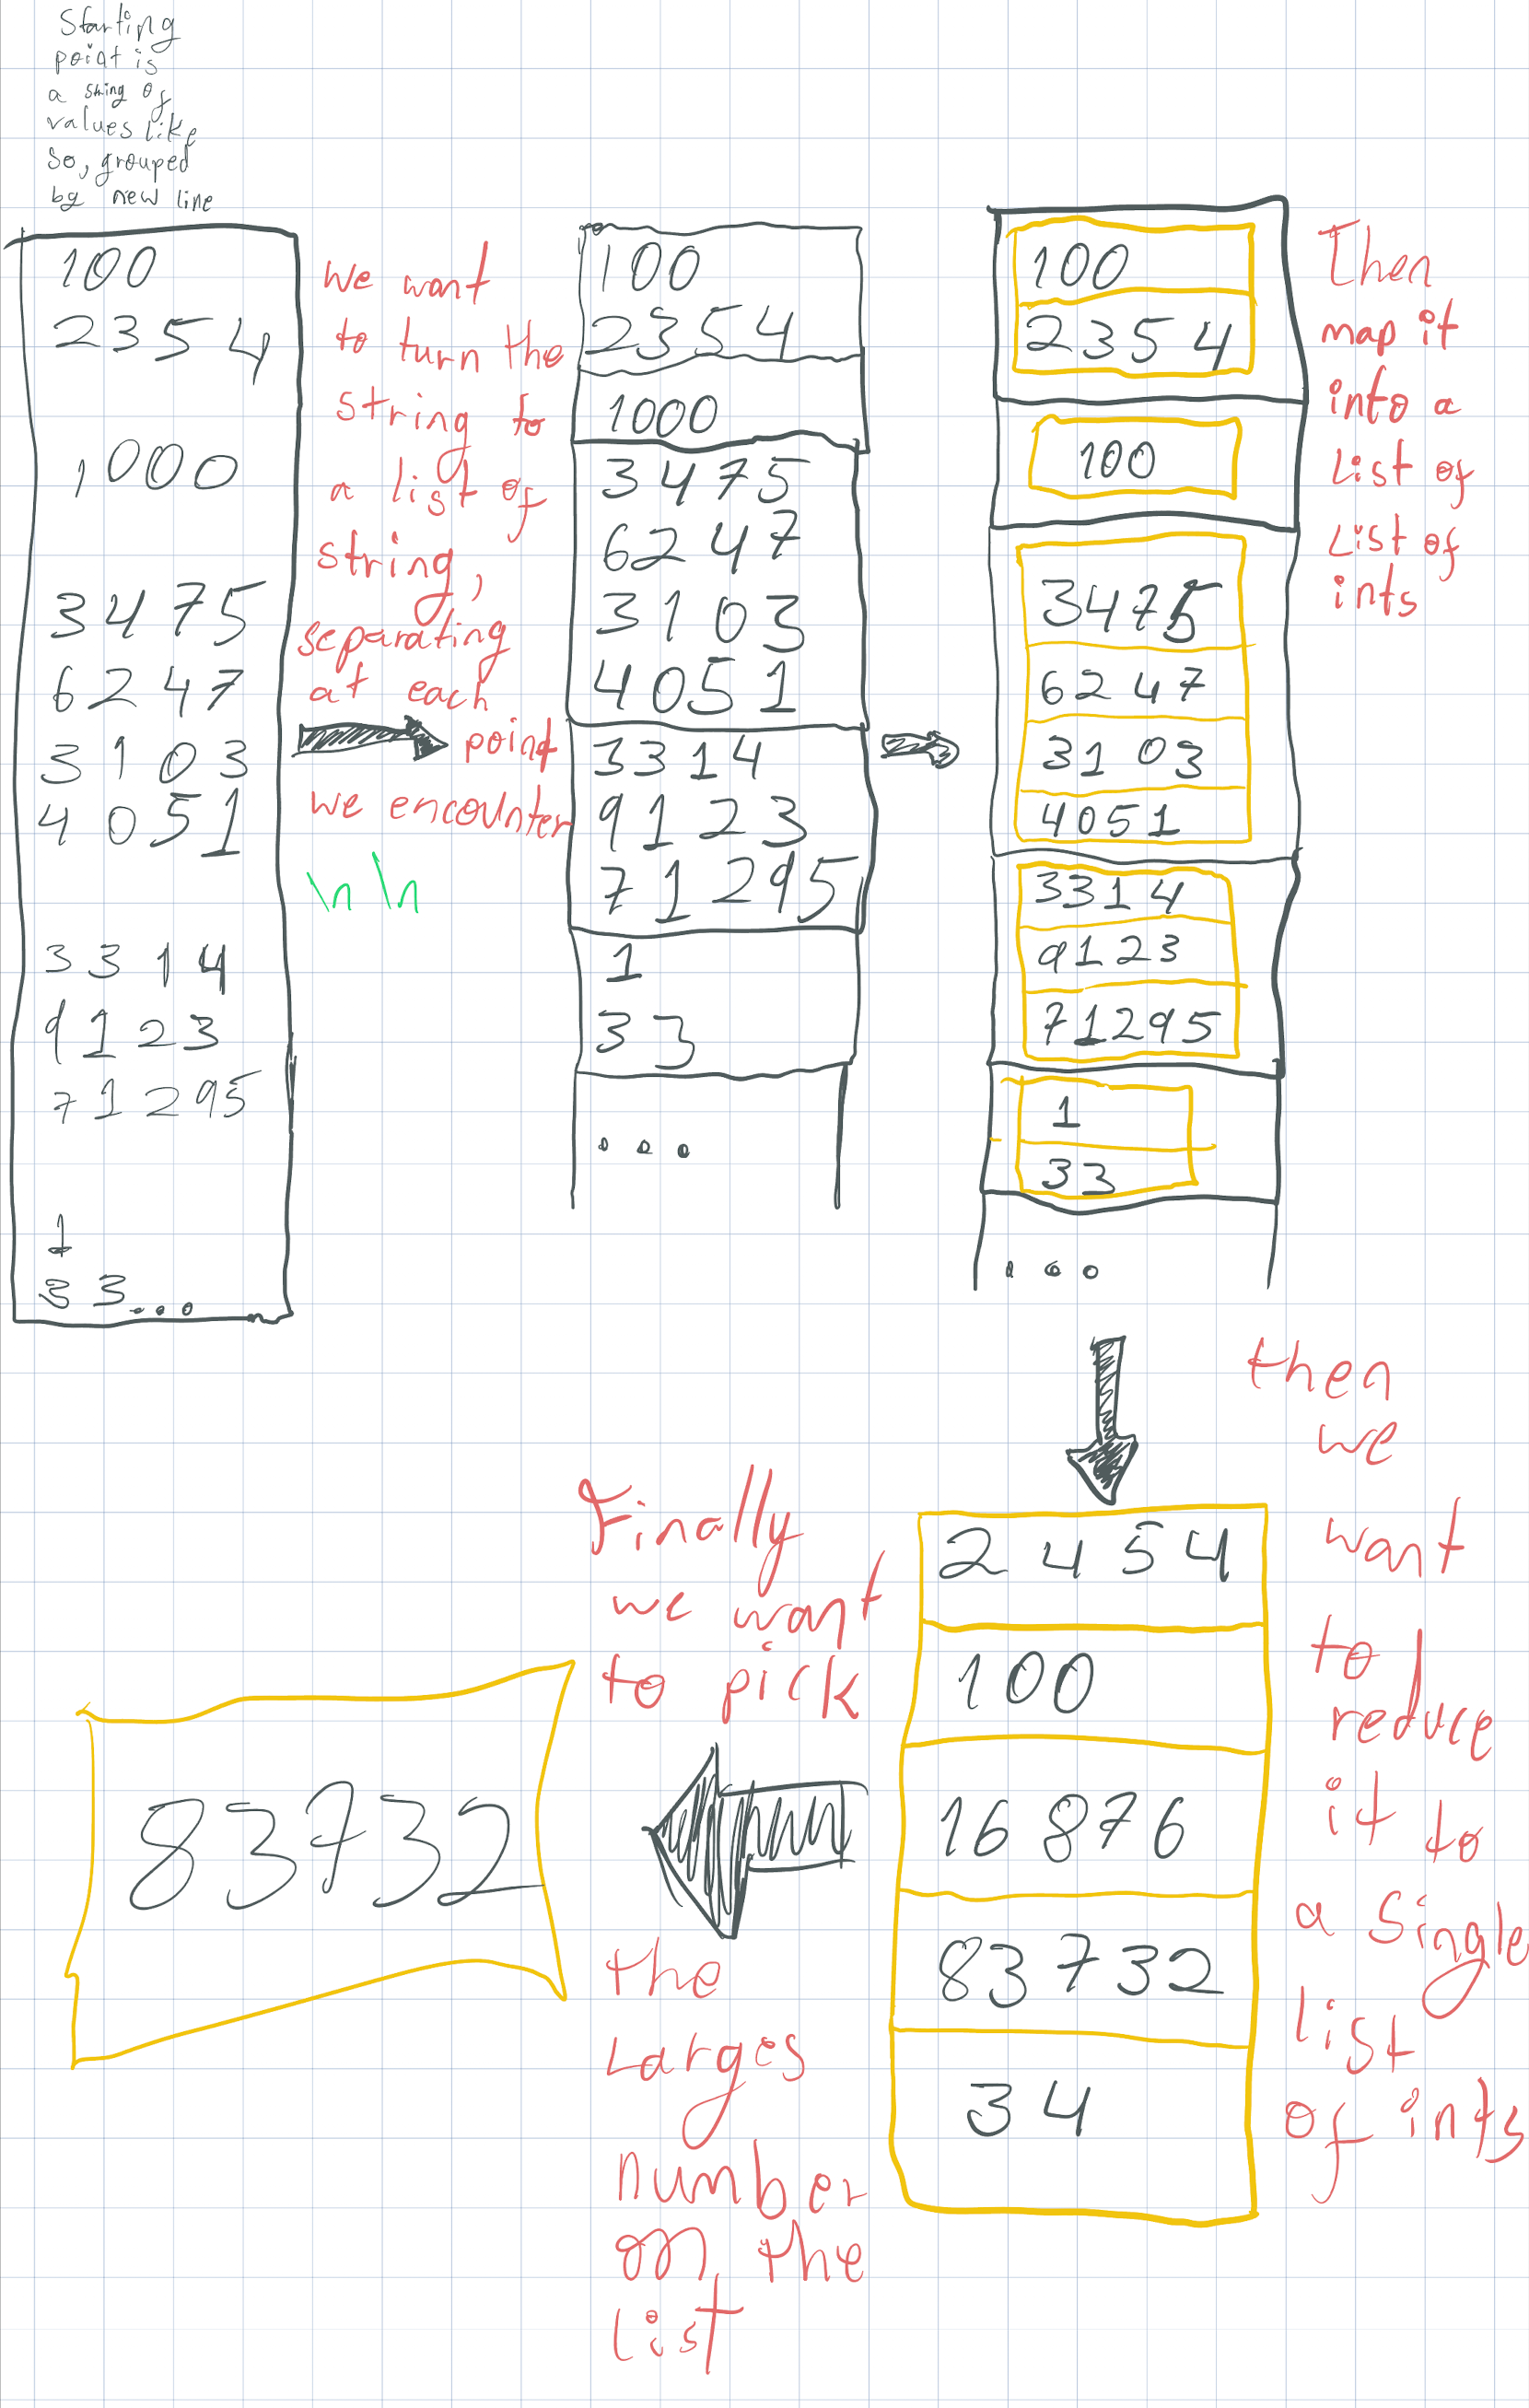 Starting
point is
a string of
values like
so, grouped
by new line
100
2354
1000
3475
6247
3103
4051
3314
9123
71295
1
33...
we want
to turn the
string to
a list of
string,
separating
at each
point
we encounter
\n\n
100
2354
1000
3475
6247
3103
4051
3314
9123
71295
1
33
...
100
2354
100
3475
6247
3103
4051
3314
9123
71295
1
33
...
Then
map it
into a
List of
List of
ints
then
we
want
to
reduce
it to
a single
list
of ints
2454
100
16876
83732
34
Finally
we want
to pick
the
Larges
number
on the
list
83732